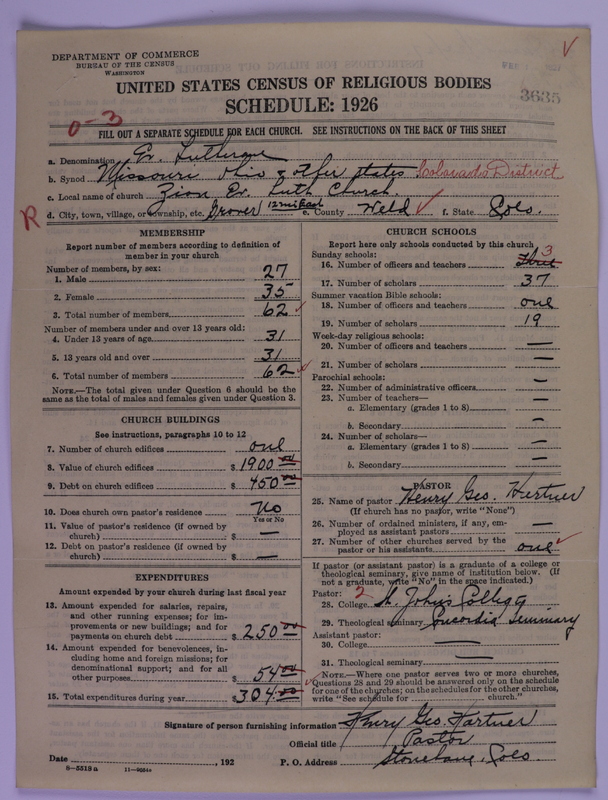 DEPARTMENT OF COMMERCE
BUREAU OF THE CENSUS
WASHINGTON
UNITED STATES CENSUS OF RELIGIOUS BODIES
SCHEDULE: 1926
3635
0-3
FILL OUT A SEPARATE SCHEDULE FOR EACH CHURCH. SEE INSTRUCTIONS ON THE BACK OF THIS SHEET
a. Denomination Ev. Lutheran
b. Synod Missouri Ohio & other states Colorado District
c. Local name of church Zion Ev. Luth Church.
R d. City, town, village, or township, etc. Grover 12 mi East e. County Weld f. State Colo.
MEMBERSHIP
Report number of members according to definition of
member in your church
Number of members, by sex:
1. Male 27
2. Female 35
3. Total number of members 62
Number of members under and over 13 years old:
4. Under 13 years of age 31
5. 13 years old and over 31
6. Total number of members 62
NOTE.—The total given under Question 6 should be
same as the total of males and females given under Question 3.
CHURCH BUILDINGS
See instructions, paragraphs 10 to 12
7. Number of church edifices one
8. Value of church edifices $1900 00
9. Debt on church edifices $450 00
10. Does church own pastor's residence No
Yes or No
11. Value of pastor's residence (if owned by
church) $ —
12. Debt on pastor's residence (if owned by
church) $ —
EXPENDITURES
Amount expended by your church during last fiscal year
13. Amount expended for salaries, repairs,
and other running expenses; for im-
provements or new buildings; and for
payments on church debt $250 00
14. Amount expended for benevolences, in-
cluding home and foreign missions; for
denominational support; and for all
other purposes $54 00
15. Total expenditures during year $304 00
CHURCH SCHOOLS
Report here only schools conducted by this church
Sunday schools:
16. Number of officers and teachers Three 3
17. Number of scholars 37
Summer vacation Bible schools:
18. Number of officers and teachers one
19. Number of scholars 19
Week-day religious schools:
20. Number of officers and teachers —
21. Number of scholars —
Parochial schools:
22. Number of administrative officers —
23. Number of teachers—
a. Elementary (grades 1 to 8) —
b. Secondary —
24. Number of scholars—
a. Elementary (grades 1 to 8) —
b. Secondary —
PASTOR
25. Name of pastor Henry Geo. Hartner
(If church has no pastor, write "None")
26. Number of ordained ministers, if any, em-
ployed as assistant pastors —
27. Number of other churches served by the
pastor or his assistants one
If pastor (or assistant pastor) is a graduate of a college or
theological seminary, give name of institution below. (If
not a graduate, write "No" in the space indicated.)
Pastor: 2
28. College St. John's College
29. Theological seminary Concordia Seminary
Assistant pastor:
30. College —
31. Theological seminary —
NOTE.—Where one pastor serves two or more churches,
Questions 28 and 29 should be answered only on the schedule
for one of the churches; on the schedules for the other churches,
write "See schedule for church."
Signature of person furnishing information Henry Geo. Hartner
Official title Pastor
Date , 192 P. O. Address Stoneham, Colo.
8—5519 a